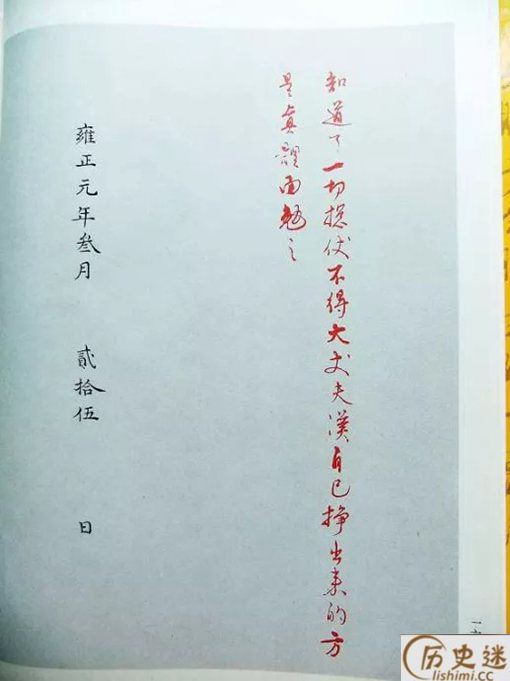 知道了一切捴仗不得大丈夫漢自己掙出来的方
是真體面勉之
雍正元年叁月 貳拾伍 日
历史迷
lishimi.cc